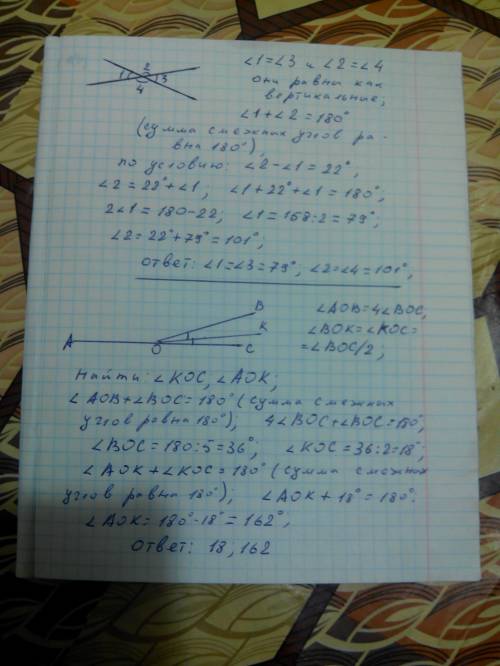 2
1 3
4
∠1=∠3 и ∠2=∠4
они равны как
вертикальные;
∠1+∠2=180°
(сумма смежных углов ра-
вна 180°),
по условию: ∠2-∠1=22°,
∠2=22°+∠1; ∠1+22°+∠1=180°;
2∠1=180-22; ∠1=158:2=79°;
∠2=22°+79°=101°;
ответ: ∠1=∠3=79°, ∠2=∠4=101°,
∠AOB=4∠BOC,
∠BOK=∠KOC=
=∠BOC/2;
B
K
A O C
Найти: ∠KOC, ∠AOK;
∠AOB+∠BOC=180° (сумма смежных
углов равна 180°), 4∠BOC+∠BOC=180°,
∠BOC=180:5=36°; ∠KOC=36:2=18°;
∠AOK+∠KOC=180° (сумма смежных
углов равна 180°), ∠AOK+18°=180°.
∠AOK=180°-18°=162°,
Ответ: 18, 162